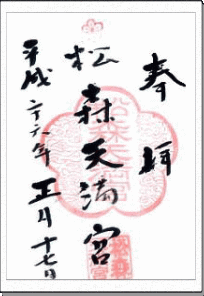 奉拝
松森天満宮
平成二十六年正月十七日
松森天満宮